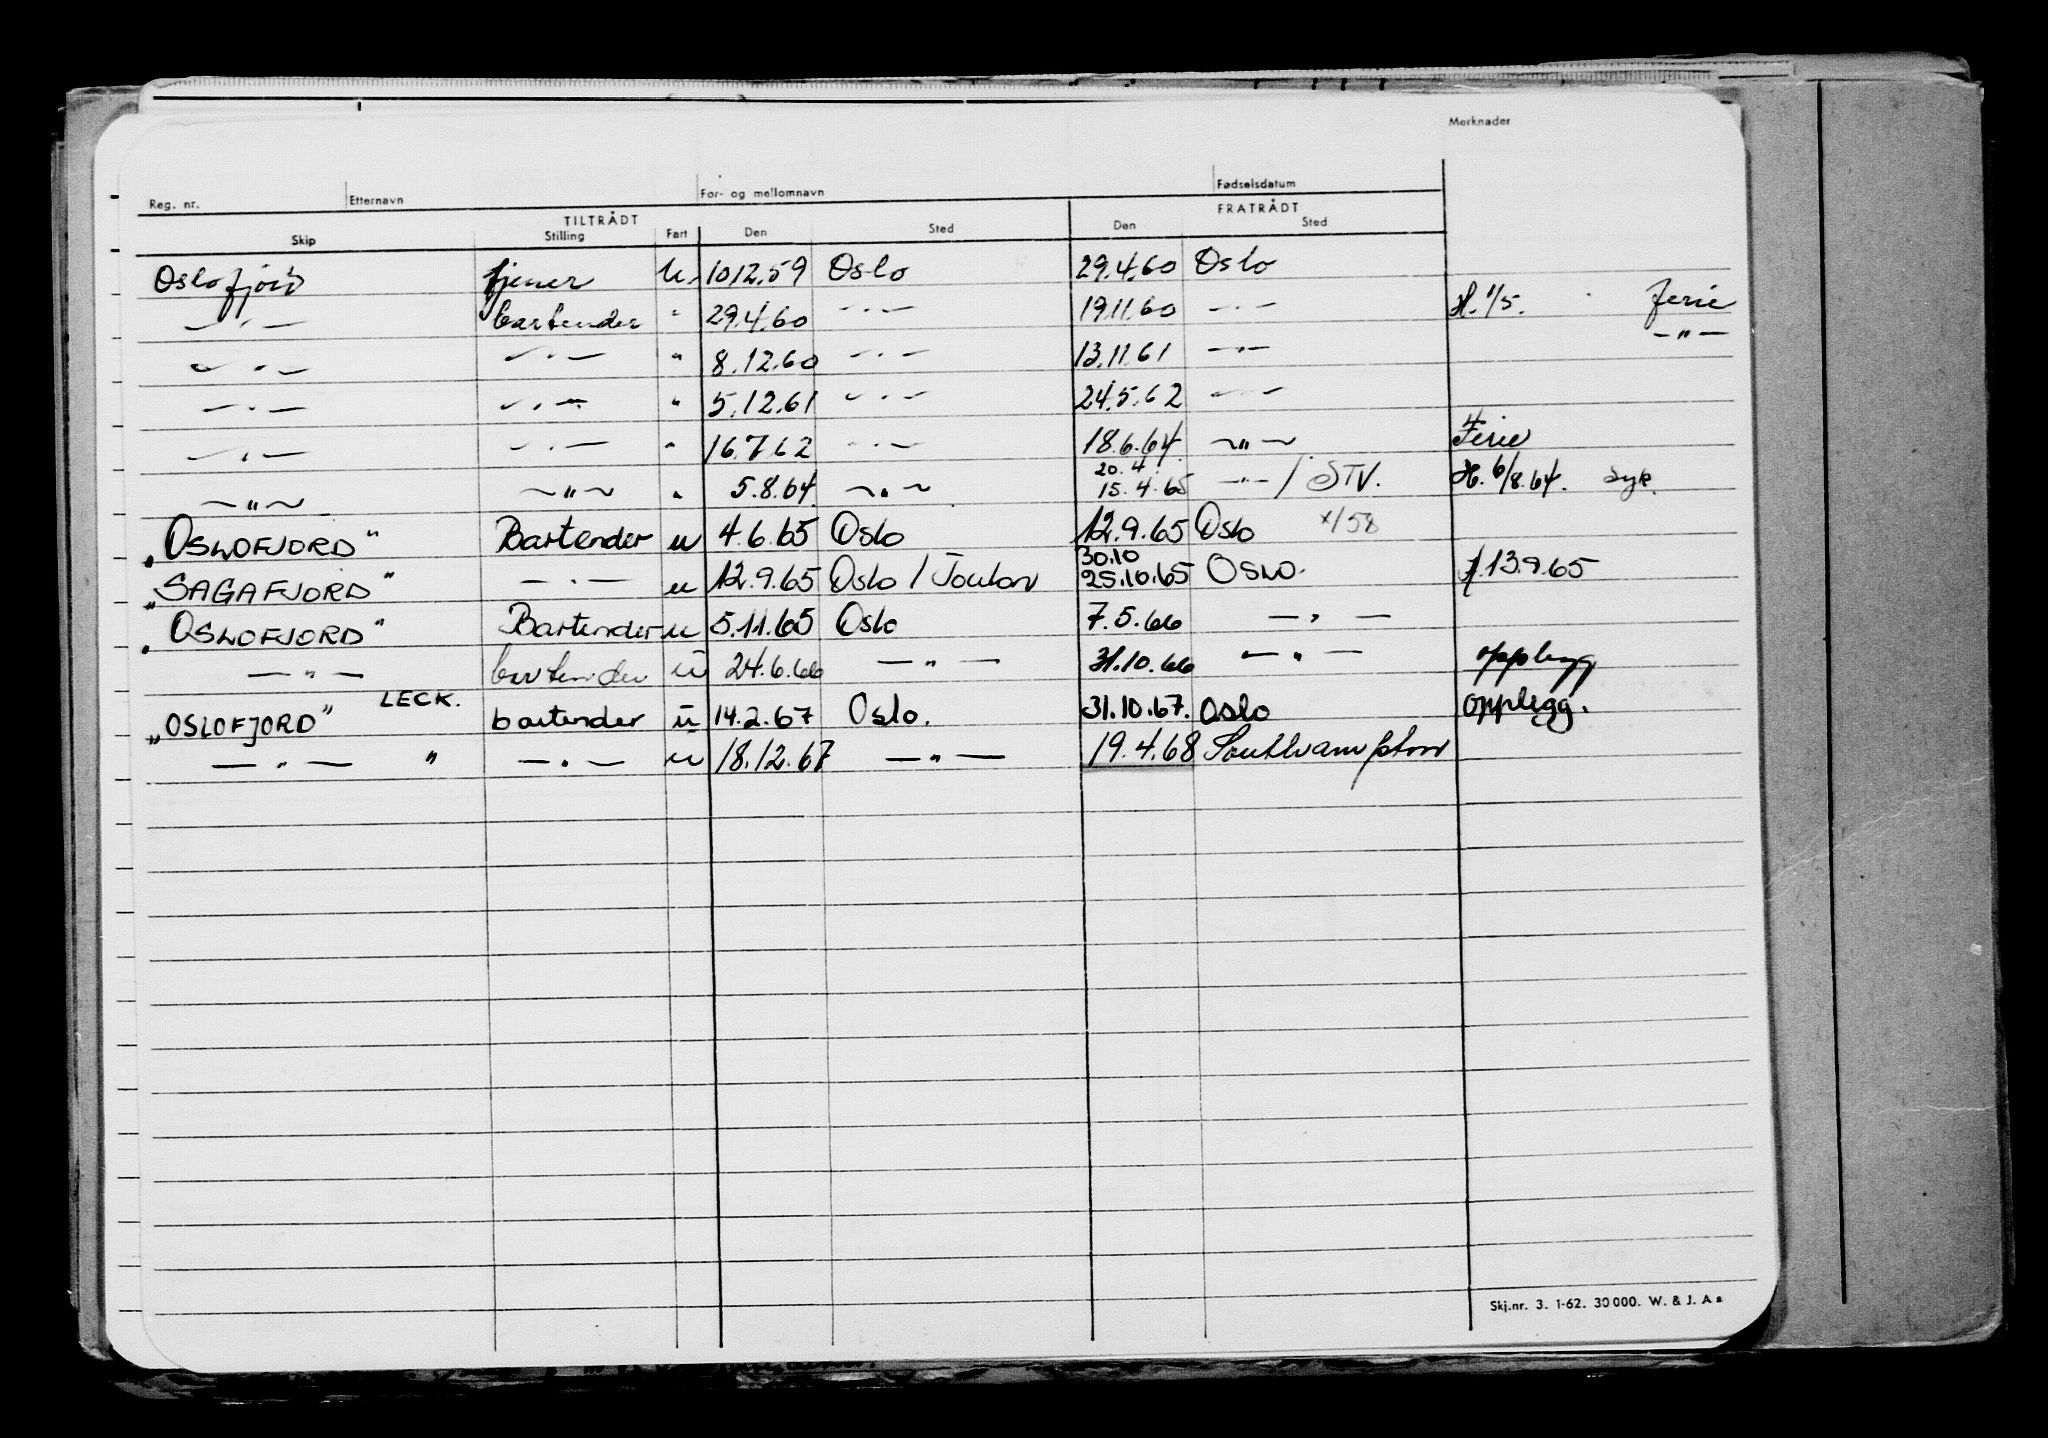 Merknader
Reg. nr. Etternavn For- og mellomnavn Fødselsdatum
TILTRÅDT FRATRÅDT
Skip Stilling Fart Den Sted Den Sted
Oslofjord tjener u. 10.12.59 Oslo 29.4.60 Oslo
—〃— bartender 〃 29.4.60 —〃— 19.11.60 —〃— H. 1/5. Ferie
—〃— —〃— 〃 8.12.60 —〃— 13.11.61 —〃— —〃—
—〃— —〃— 〃 5.12.61 —〃— 24.5.62 —〃—
—〃— —〃— 〃 16.7.62 —〃— 18.6.64 —〃— Ferie
20.4.
—〃— —〃— 〃 5.8.64 —〃— 15.4.65 —〃— / STV. H. 6/8.64. syk.
„OSLOFJORD" Bartender u 4.6.65 Oslo 12.9.65 Oslo x/58
30.10
„SAGAFJORD" —〃— u 12.9.65 Oslo / Toulon 25.10.65 OSLO. 13.9.65
„OSLOFJORD" Bartender u 5.11.65 Oslo 7.5.66 —〃—
—〃— bartender u 24.6.66 —〃— 31.10.66 —〃— opplegg
LECK.
„OSLOFJORD" bartender u 14.2.67 Oslo. 31.10.67. Oslo opplegg.
—〃— 〃 —〃— u 18.12.67 —〃— 19.4.68 Southampton
Skj.nr. 3. 1-62. 30 000. W. & J. A s